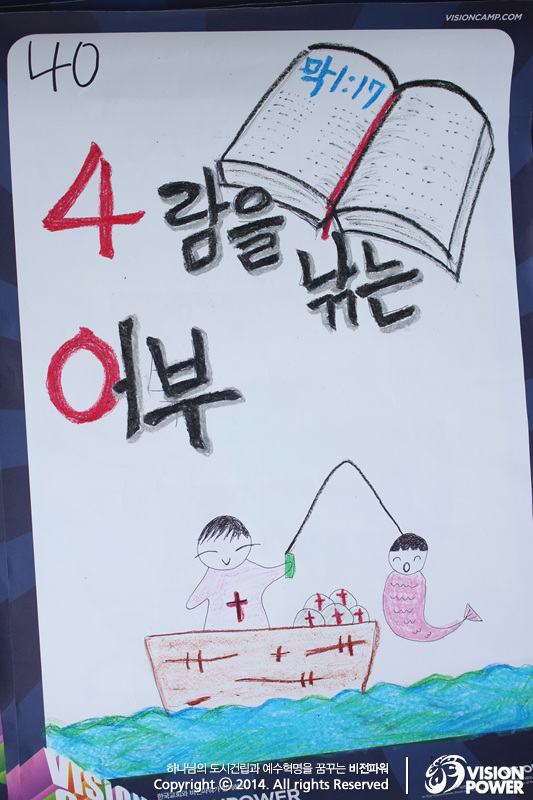 VISIONCAMP.COM
40
막1:17
4람을
낚는
어부
하나님의 도시건립과 예수혁명을 꿈꾸는 비전파워
Copyright ⓒ 2014. All rights Reserved
VISION
POWER